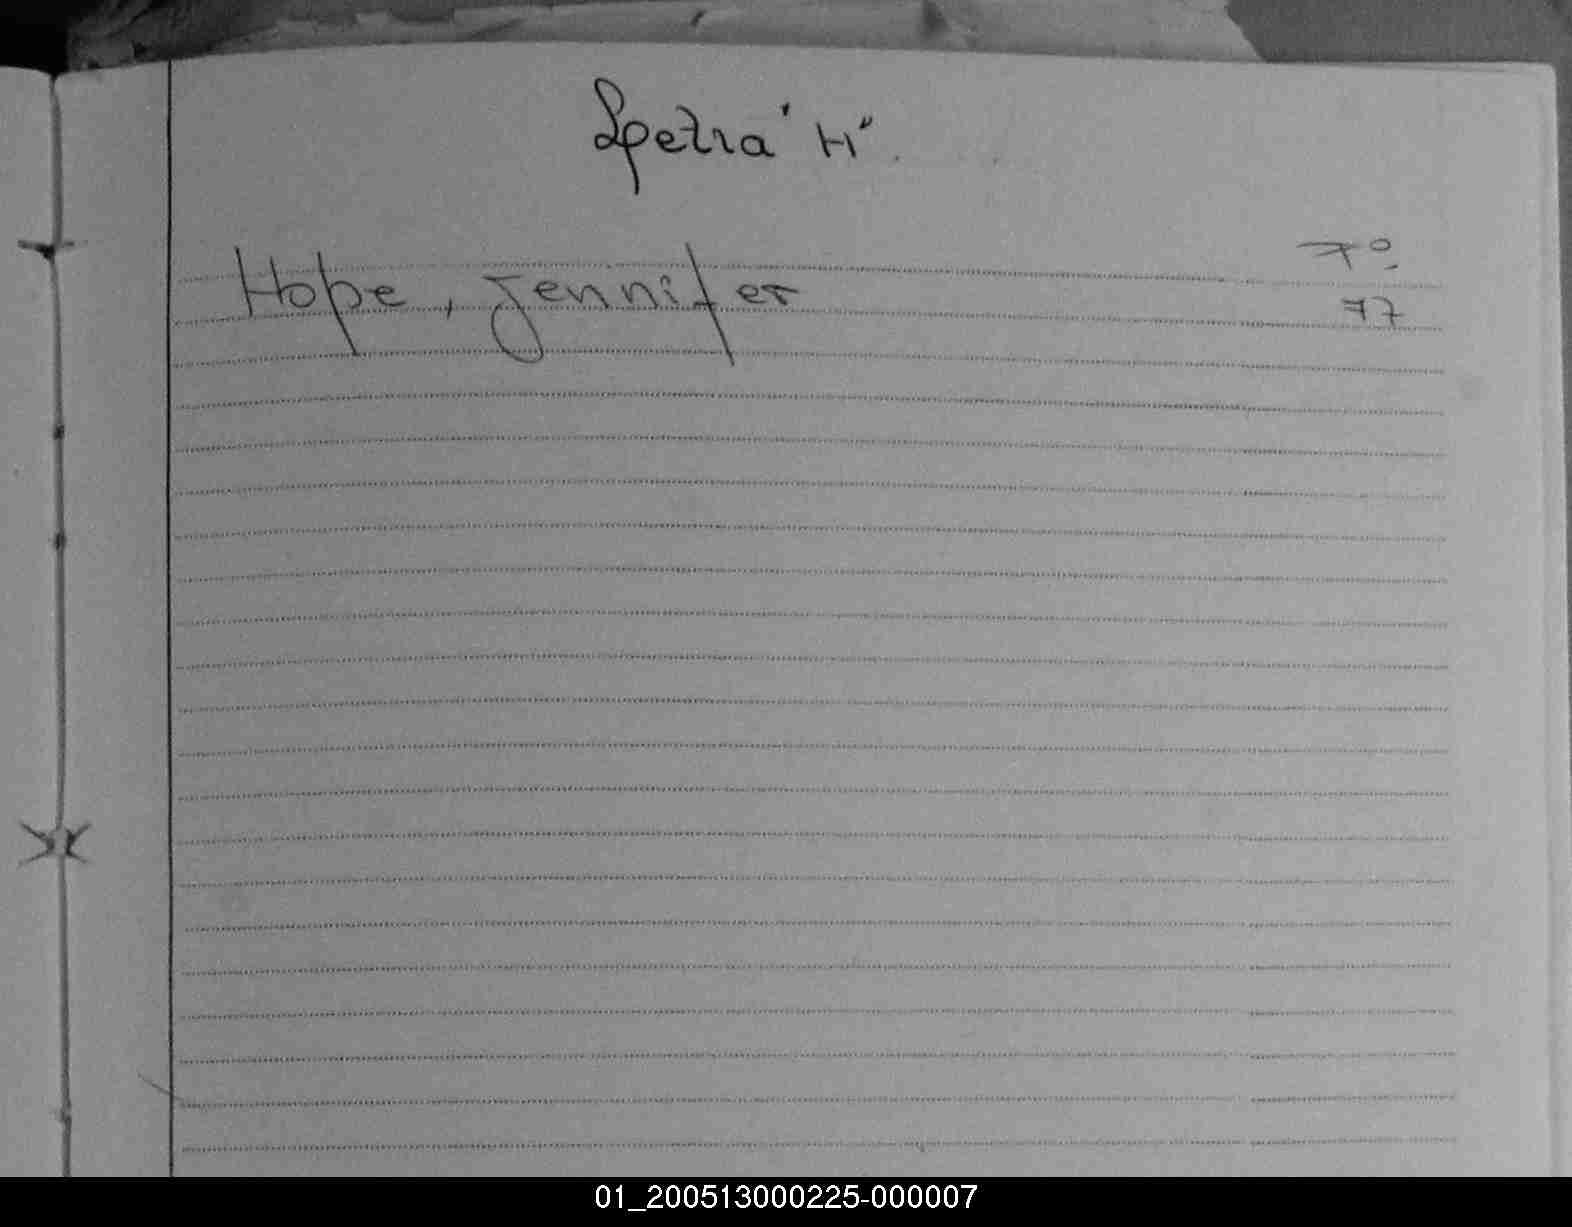 Letra "H".
Fº.
Hope, Jennifer 77
01_200513000225-000007